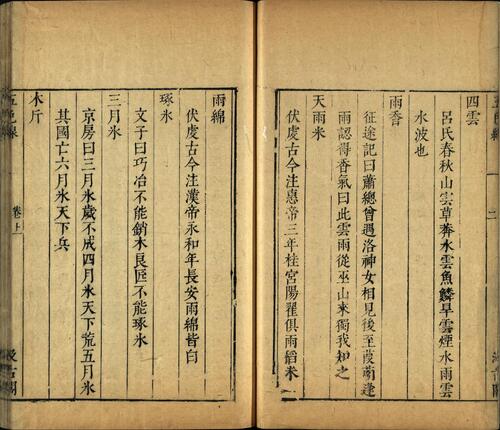 四雲
呂氏春秋山雲草莽水雲魚鱗旱雲煙水雨雲
水波也
雨香
征途記曰蕭總曾遇洛神女相見後至葭萌逢
雨認得香氣曰此雲雨從巫山來獨我知之
天雨米
伏虔古今注惠帝三年桂宮陽翟俱雨稻米
雨綿
伏虔古今注漢帝永和年長安雨綿皆白
琢氷
文子曰巧冶不能銷木良匠不能琢氷
三月氷
京房曰三月氷歲不成四月氷天下荒五月氷
其國亡六月氷天下兵
木斤
五色線
卷上
汲古閣